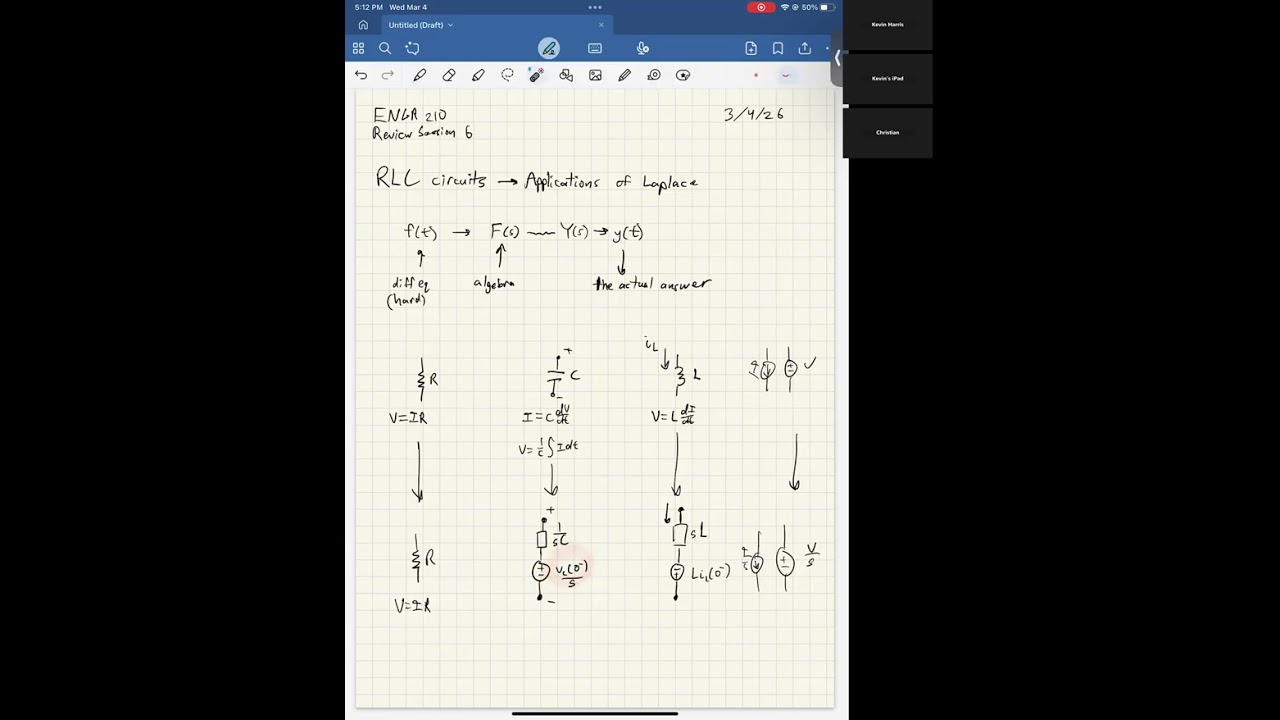 5:12 PM Wed Mar 4
50%
Untitled (Draft)
Kevin Harris
Kevin's iPad
Christian
ENGR 210
3/4/26
Review Session 6
RLC circuits → Applications of Laplace
f(t) → F(s) — Y(s) → y(t)
diff eq
(hard)
algebra
the actual answer
R
+
C
-
iL
L
V
V=IR
I = C dV/dt
V= L dI/dt
V= 1/C ∫ I dt
R
V=IR
+
1/sC
+
-
vc(0⁻)/s
-
sL
LiL(0⁻)
+
-
V/s